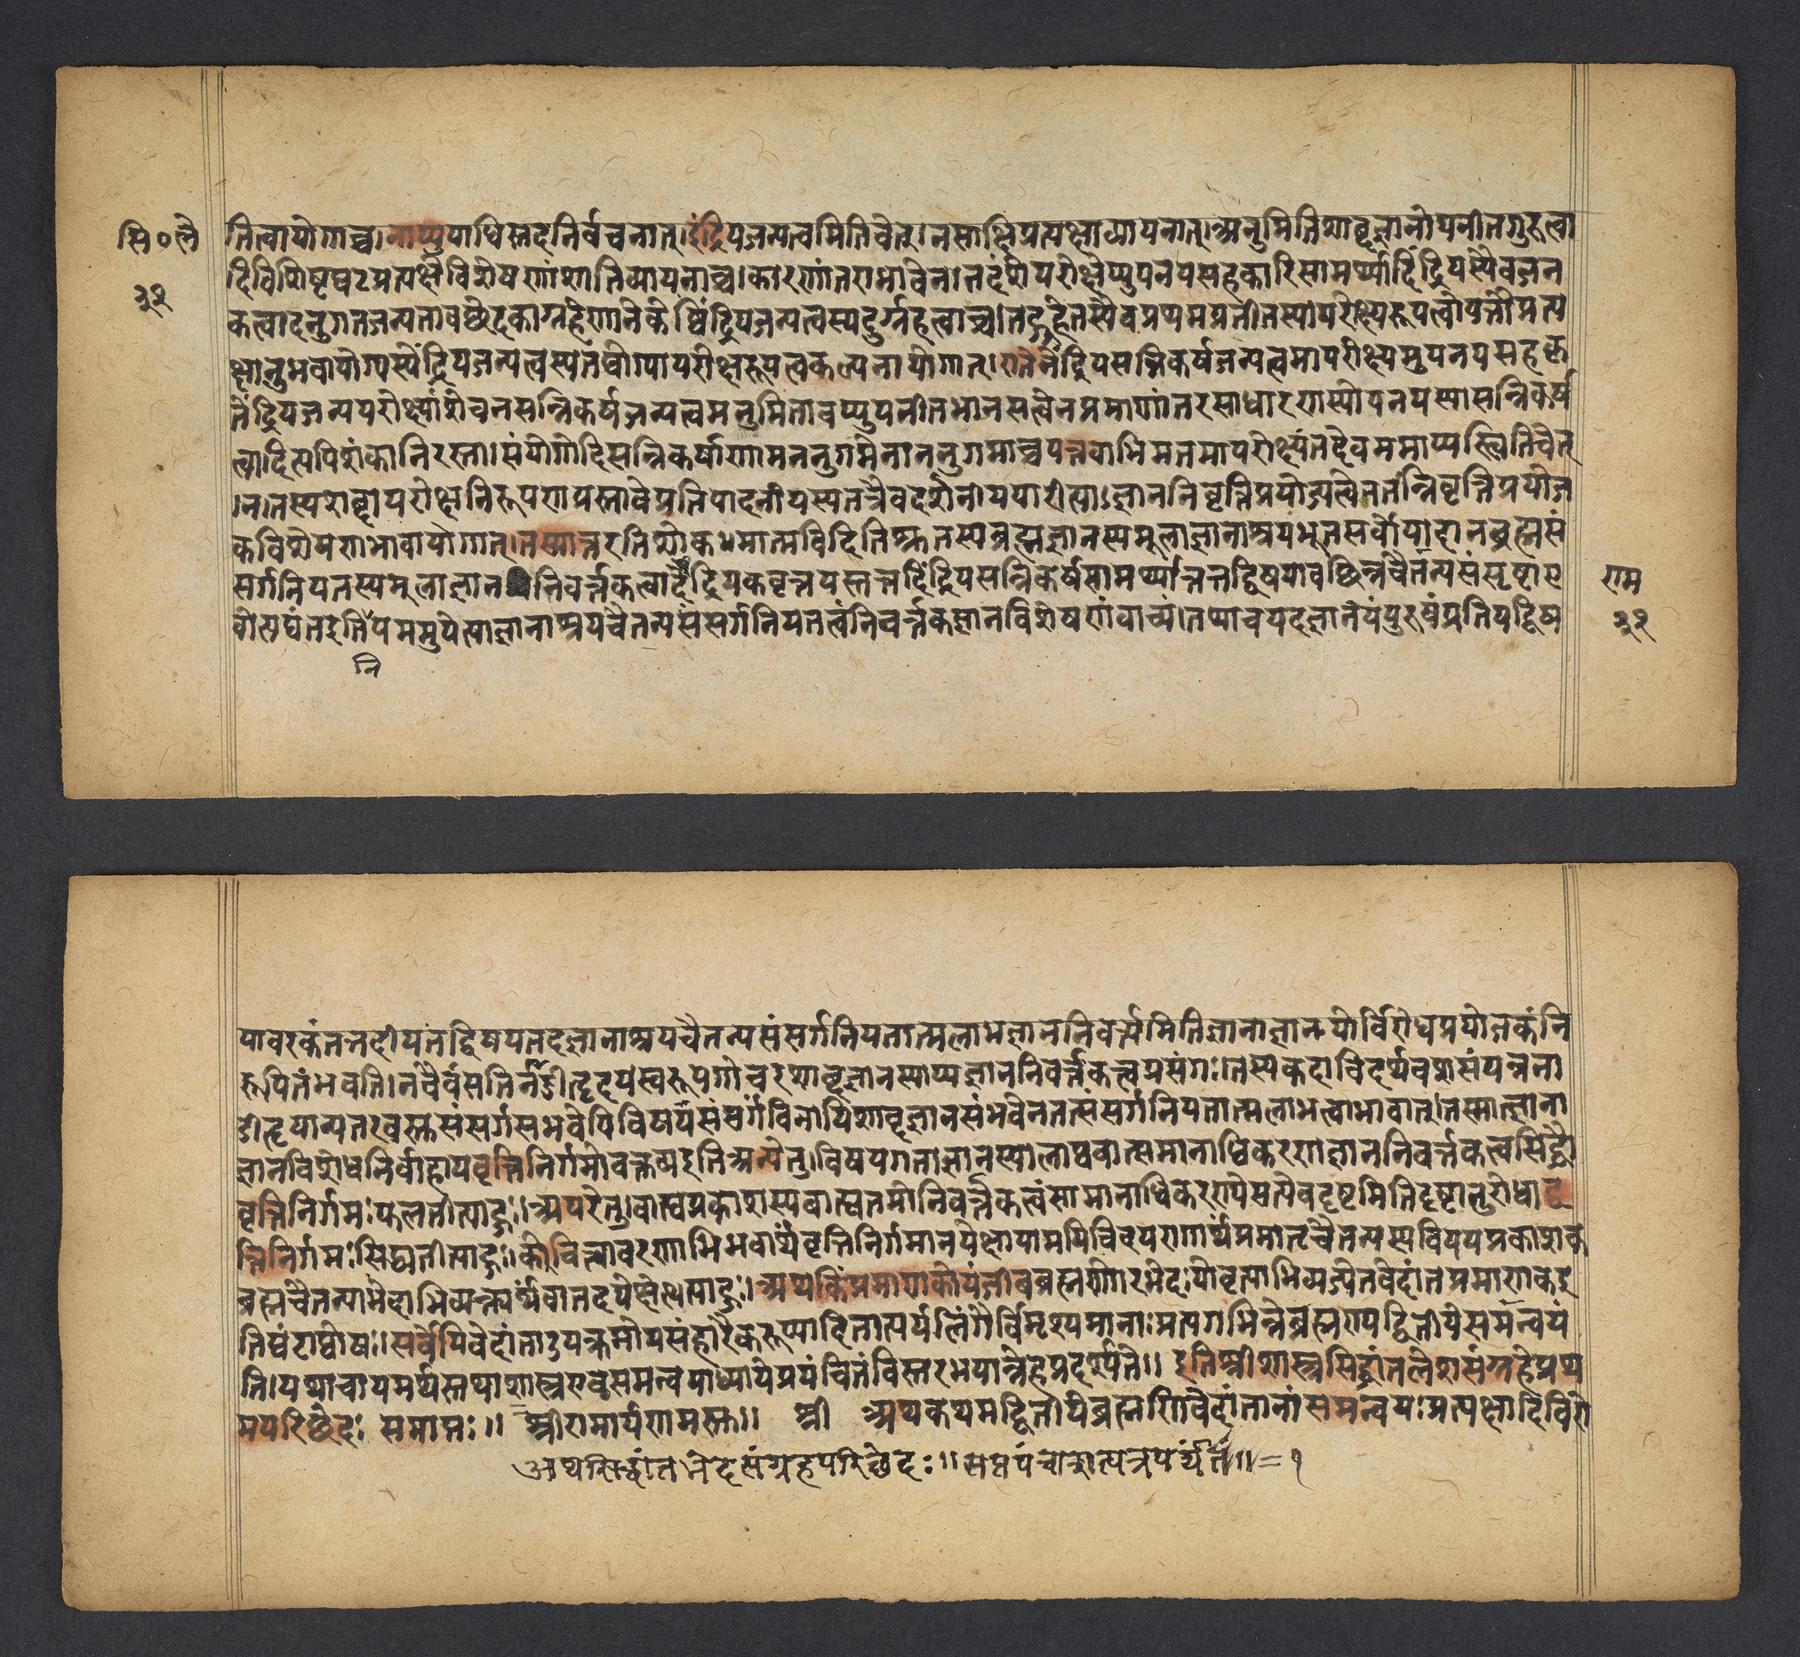 सि०ले
३१
तित्वायोगाच्च।नाप्युपाधिस्तदनिर्वचनात्।इंद्रियजन्यत्वमितिचेत्।नसाक्षिप्रत्यक्षाव्यापनात्।अनुमितिशाब्दज्ञानोपनीतगुरुत्वा
दिविशिष्टघटप्रत्यक्षेविशेषणांशातिव्यापनाच्च।कारणांतराभावेन।तदंशेपरोक्षेप्युपनयसहकारिसामर्थ्यादिंद्रियस्यैवजन
कत्वादनुगतजन्यतावच्छेदकाग्रहेणानेकेष्विंद्रियजन्यत्वस्यदुर्ग्रहत्वाच्च।तद्गृहेतस्यैवप्रथमप्रतीतस्यापरोक्ष्यरूपत्वोपपत्तौप्रत्य
क्षानुभवायोग्यस्येंद्रियजन्यत्वस्यतद्योग्यापरोक्षरूपत्वकल्पनायोगात्।एतेनेंद्रियसन्निकर्षजन्यत्वमापरोक्ष्यमुपनयसहकृ
तेंद्रियजन्यपरोक्षांशेचनसन्निकर्षजन्यत्वमनुमितावप्युपनीतभानसत्वेनप्रमाणांतरसाधारणस्योपनयस्यासन्निकर्ष
त्वादित्यपिशंकानिरस्ता।संयोगादिसन्निकर्षाणामननुगमेनाननुगमाच्चयत्त्वभिमतमापरोक्ष्यंतदेवममाप्यस्त्वितिचेत्
।न।तस्यशाब्दापरोक्षनिरूपणप्रस्तावेप्रतिपादनीयस्यतत्रैवदर्शनीययारीत्याज्ञाननिवृत्तिप्रयोज्यत्वेनतन्निवृत्तिप्रयोज
कविशेषणाभावायोगात्।तस्मात्तरतिशोकमात्मविदितिश्रुतस्यब्रह्मज्ञानस्यमूलाज्ञानाश्रयभूतसर्वोपादानब्रह्मसं
सर्गनियतस्यमूलाज्ञाननिवर्त्तकत्वादैंद्रियकवृत्तयस्तत्तदिंद्रियसन्निकर्षसामर्थ्यात्तत्तद्विषयावच्छिन्नचैतन्यसंसृष्टाए
वोत्पद्यंतइतिनियममुपेत्याज्ञानाश्रयचैतन्यसंसर्गनियतत्वंनिवर्त्तकज्ञानविशेषणंवाच्यं।तथाचयदज्ञानंयंपुरुषंप्रतियद्विष
नि
राम
३१
यावरकंतत्तदीयंतद्विषयतदज्ञानाश्रयचैतन्यसंसर्गनियतात्मलाभज्ञाननिवर्त्यमितिज्ञानाज्ञानयोर्विरोधप्रयोजकंनि
रूपितंभवति।नचैवंसतिनाडीहृदयस्वरूपगोचरशाब्दज्ञानस्याप्यज्ञाननिवर्त्तकत्वप्रसंगः।तस्यकदाचिदर्थवशसंपन्नना
डीहृदयान्यतरवस्तुसंसर्गसंभवेपिविषयसंसर्गंविनापिशाब्दज्ञानसंभवेनतत्संसर्गनियतात्मलाभत्वाभावात्।तस्मात्ज्ञाना
ज्ञानविरोधनिर्वाहायवृत्तिनिर्गमोवक्तव्यइतिअन्येतु।विषयगताज्ञानस्यालाघवात्समानाधिकरणज्ञाननिवर्त्तकत्वसिद्धौ
वृत्तिनिर्गमःफलतीत्याहुः।अपरेतु।बाह्यप्रकाशस्यबाह्यतमोनिवर्त्तकत्वंसामानाधिकरण्येसत्येवदृष्टमितिदृष्टांतानुरोधाद्वृ
त्तिनिर्गमःसिद्ध्यतीत्याहुः।केचित्त्वावरणाभिभवार्थंवृत्तिनिर्गमानपेक्षायामपिचिदुपरागार्थंप्रमातृचैतन्यस्यविषयप्रकाशक
ब्रह्मचैतन्याभेदाभिव्यक्त्यर्थंवातदपेक्षेत्याहुः।अथकिंप्रमाणकोयंजीवब्रह्मणोरभेदःयोवृत्त्याभिव्यज्येतवेदांतप्रमाणकइ
तिघंटाघोषः।सर्वेपिवेदांताउपक्रमोपसंहारैकरूप्यादितात्पर्यलिंगैर्विमृश्यमानाःप्रत्यगभिन्नेब्रह्मण्यद्वितीयेसमन्वयं
ति।यथाचायमर्थस्तथाशास्त्रएवसमन्वयाध्यायेप्रपंचितंविस्तरभयान्नेहप्रदर्श्यते॥ इतिश्रीशास्त्रसिद्धांतलेशसंग्रहेप्रथ
मपरिच्छेदः समाप्तः॥ श्रीरामार्पणमस्तु॥ श्री अथकथमद्वितीयेब्रह्मणिवेदांतानांसमन्वयःप्रत्यक्षादिविरो
अथसिद्धांतभेदेसंग्रहपरिछेदः॥सप्तपंचाशत्पत्रपर्य्यंतं॥=१